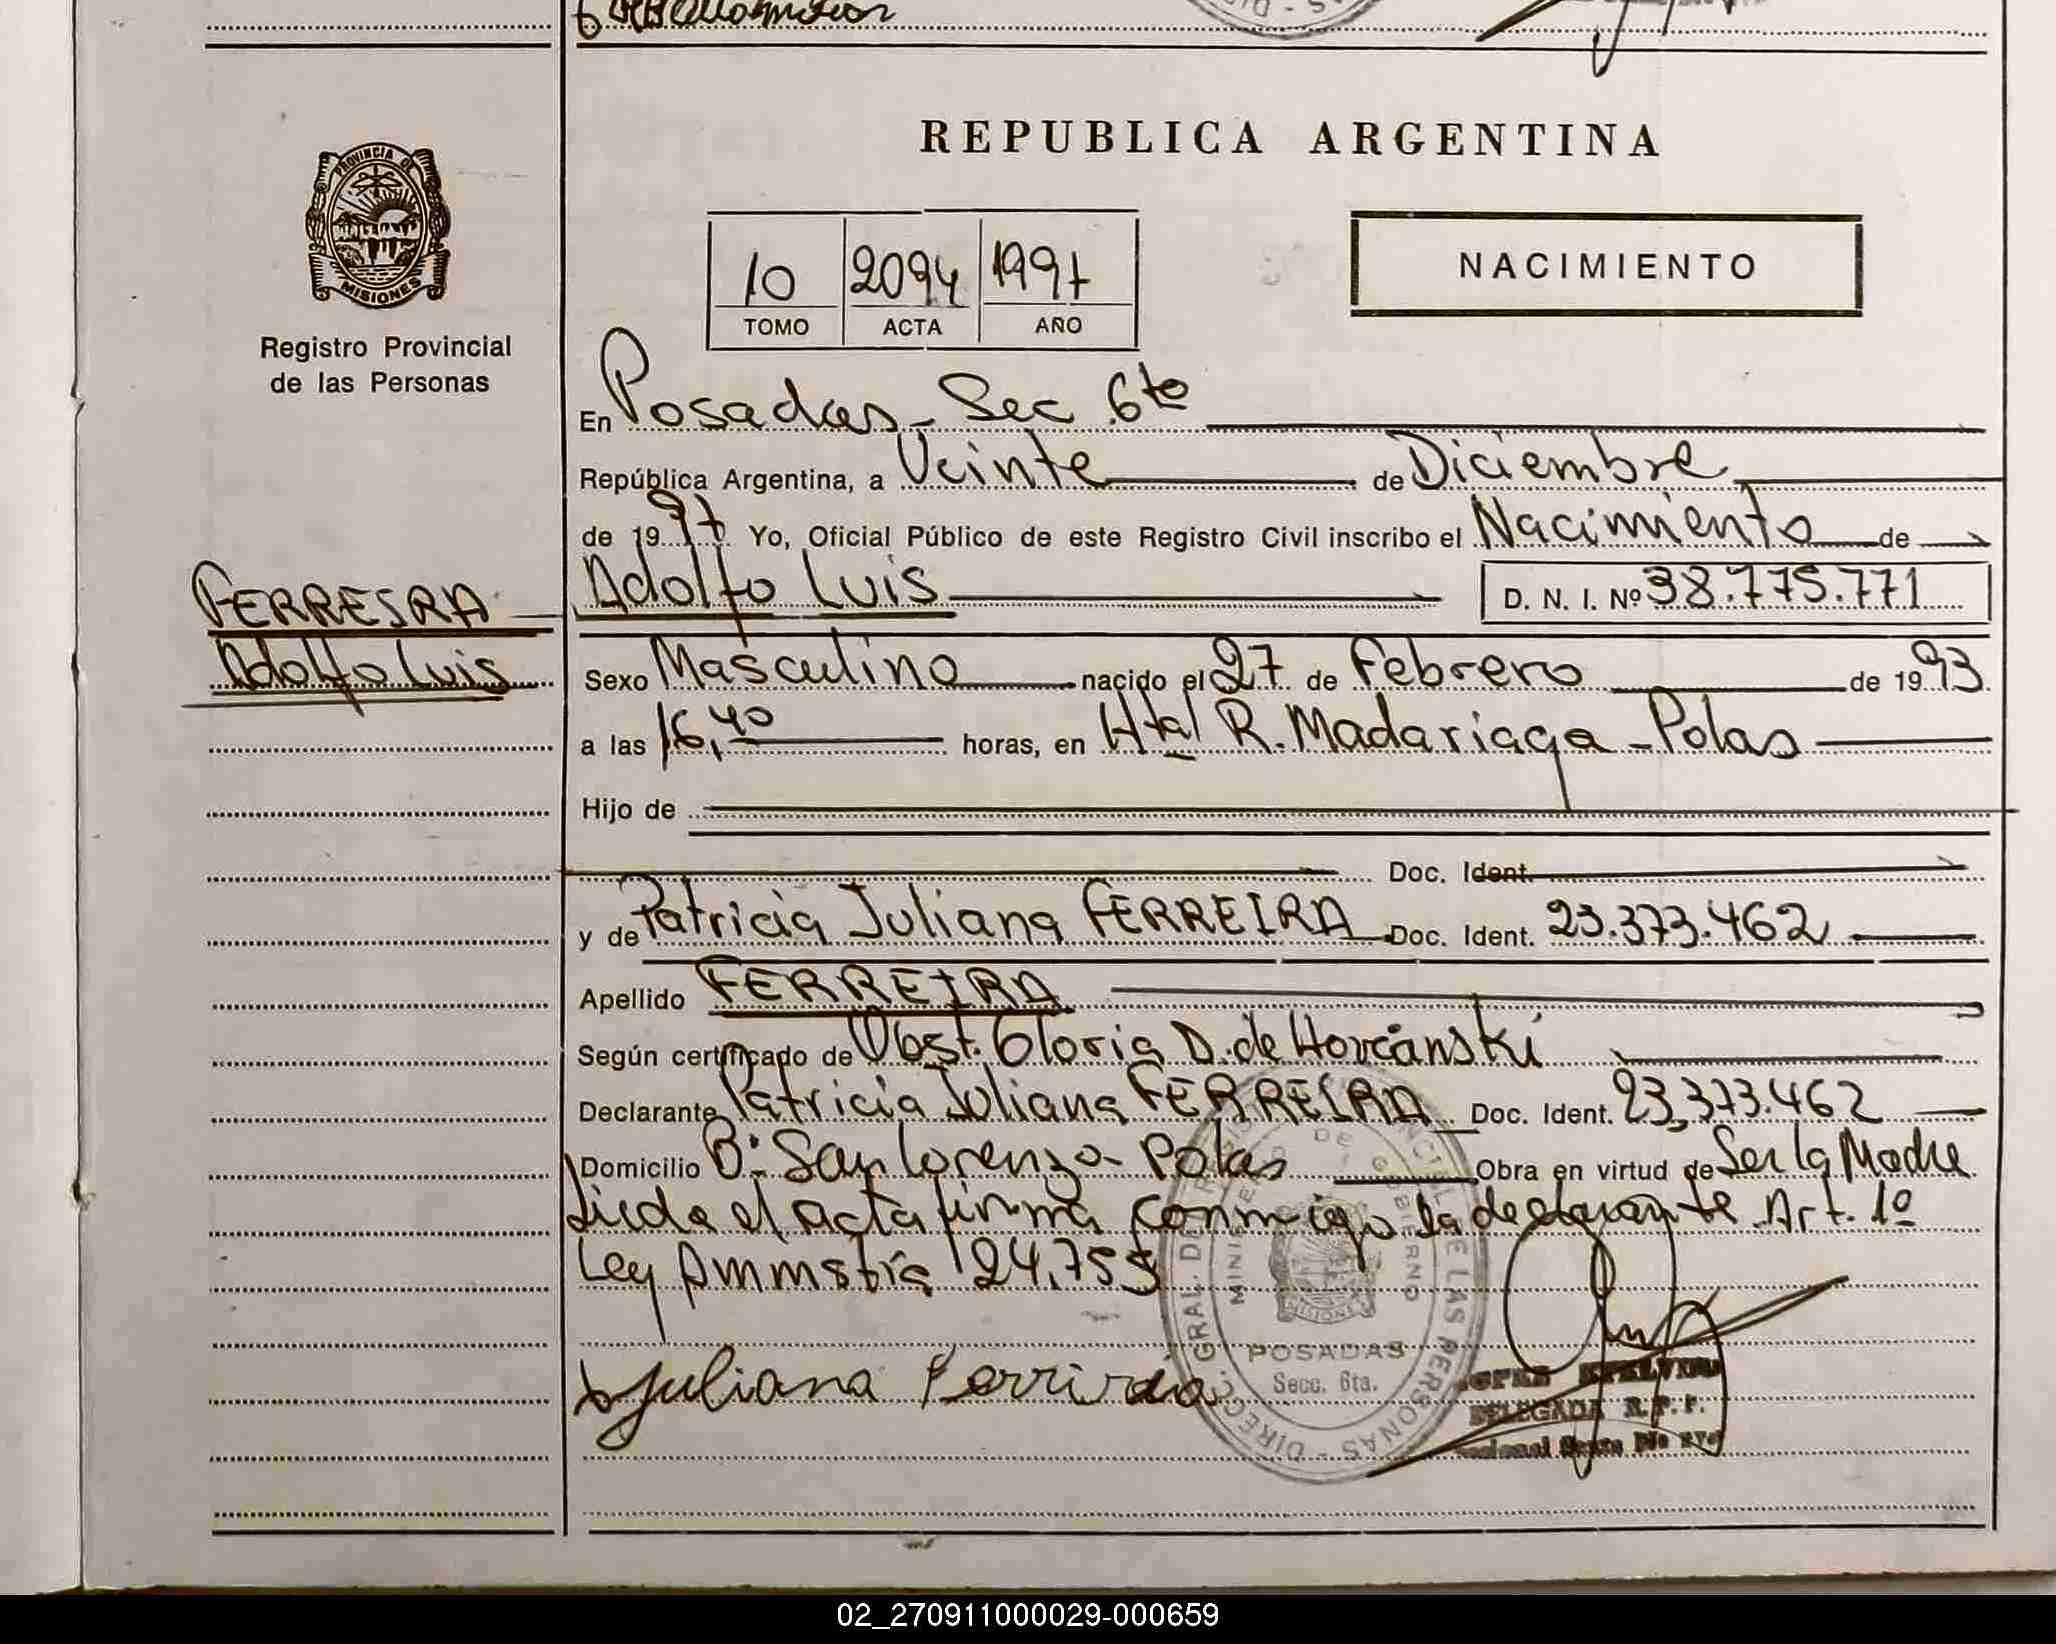 REPUBLICA ARGENTINA
PROVINCIA DE
MISIONES
Registro Provincial
de las Personas
10 2094 1997
TOMO ACTA AÑO
NACIMIENTO
En Posadas - Sec 6ta
República Argentina, a Veinte de Diciembre
de 1997 Yo, Oficial Público de este Registro Civil inscribo el Nacimiento de
FERREIRA
Adolfo Luis
Adolfo Luis D. N. I. Nº 38.775.771
Sexo Masculino nacido el 27 de Febrero de 1993
a las 16,40 horas, en Htal R. Madariaga - Pdas
Hijo de
Doc. Ident.
y de Patricia Juliana FERREIRA Doc. Ident. 23.373.462
Apellido FERREIRA
Según certificado de Obst. Gloria D. de Horcanski
Declarante Patricia Juliana FERREIRA Doc. Ident. 23,373.462
Domicilio Bº San Lorenzo - Pdas Obra en virtud de Ser la Madre
Lieda el acta firma conmigo la declarante Art. 1º
Ley Ammstía 24.755
Juliana Ferrirda
DIREC. GRAL. DEL REGISTRO PROVINCIAL DE LAS PERSONAS
MINISTERIO DE GOBIERNO
POSADAS
Secc. 6ta.
DELEGADA R. P. P.
02_270911000029-000659